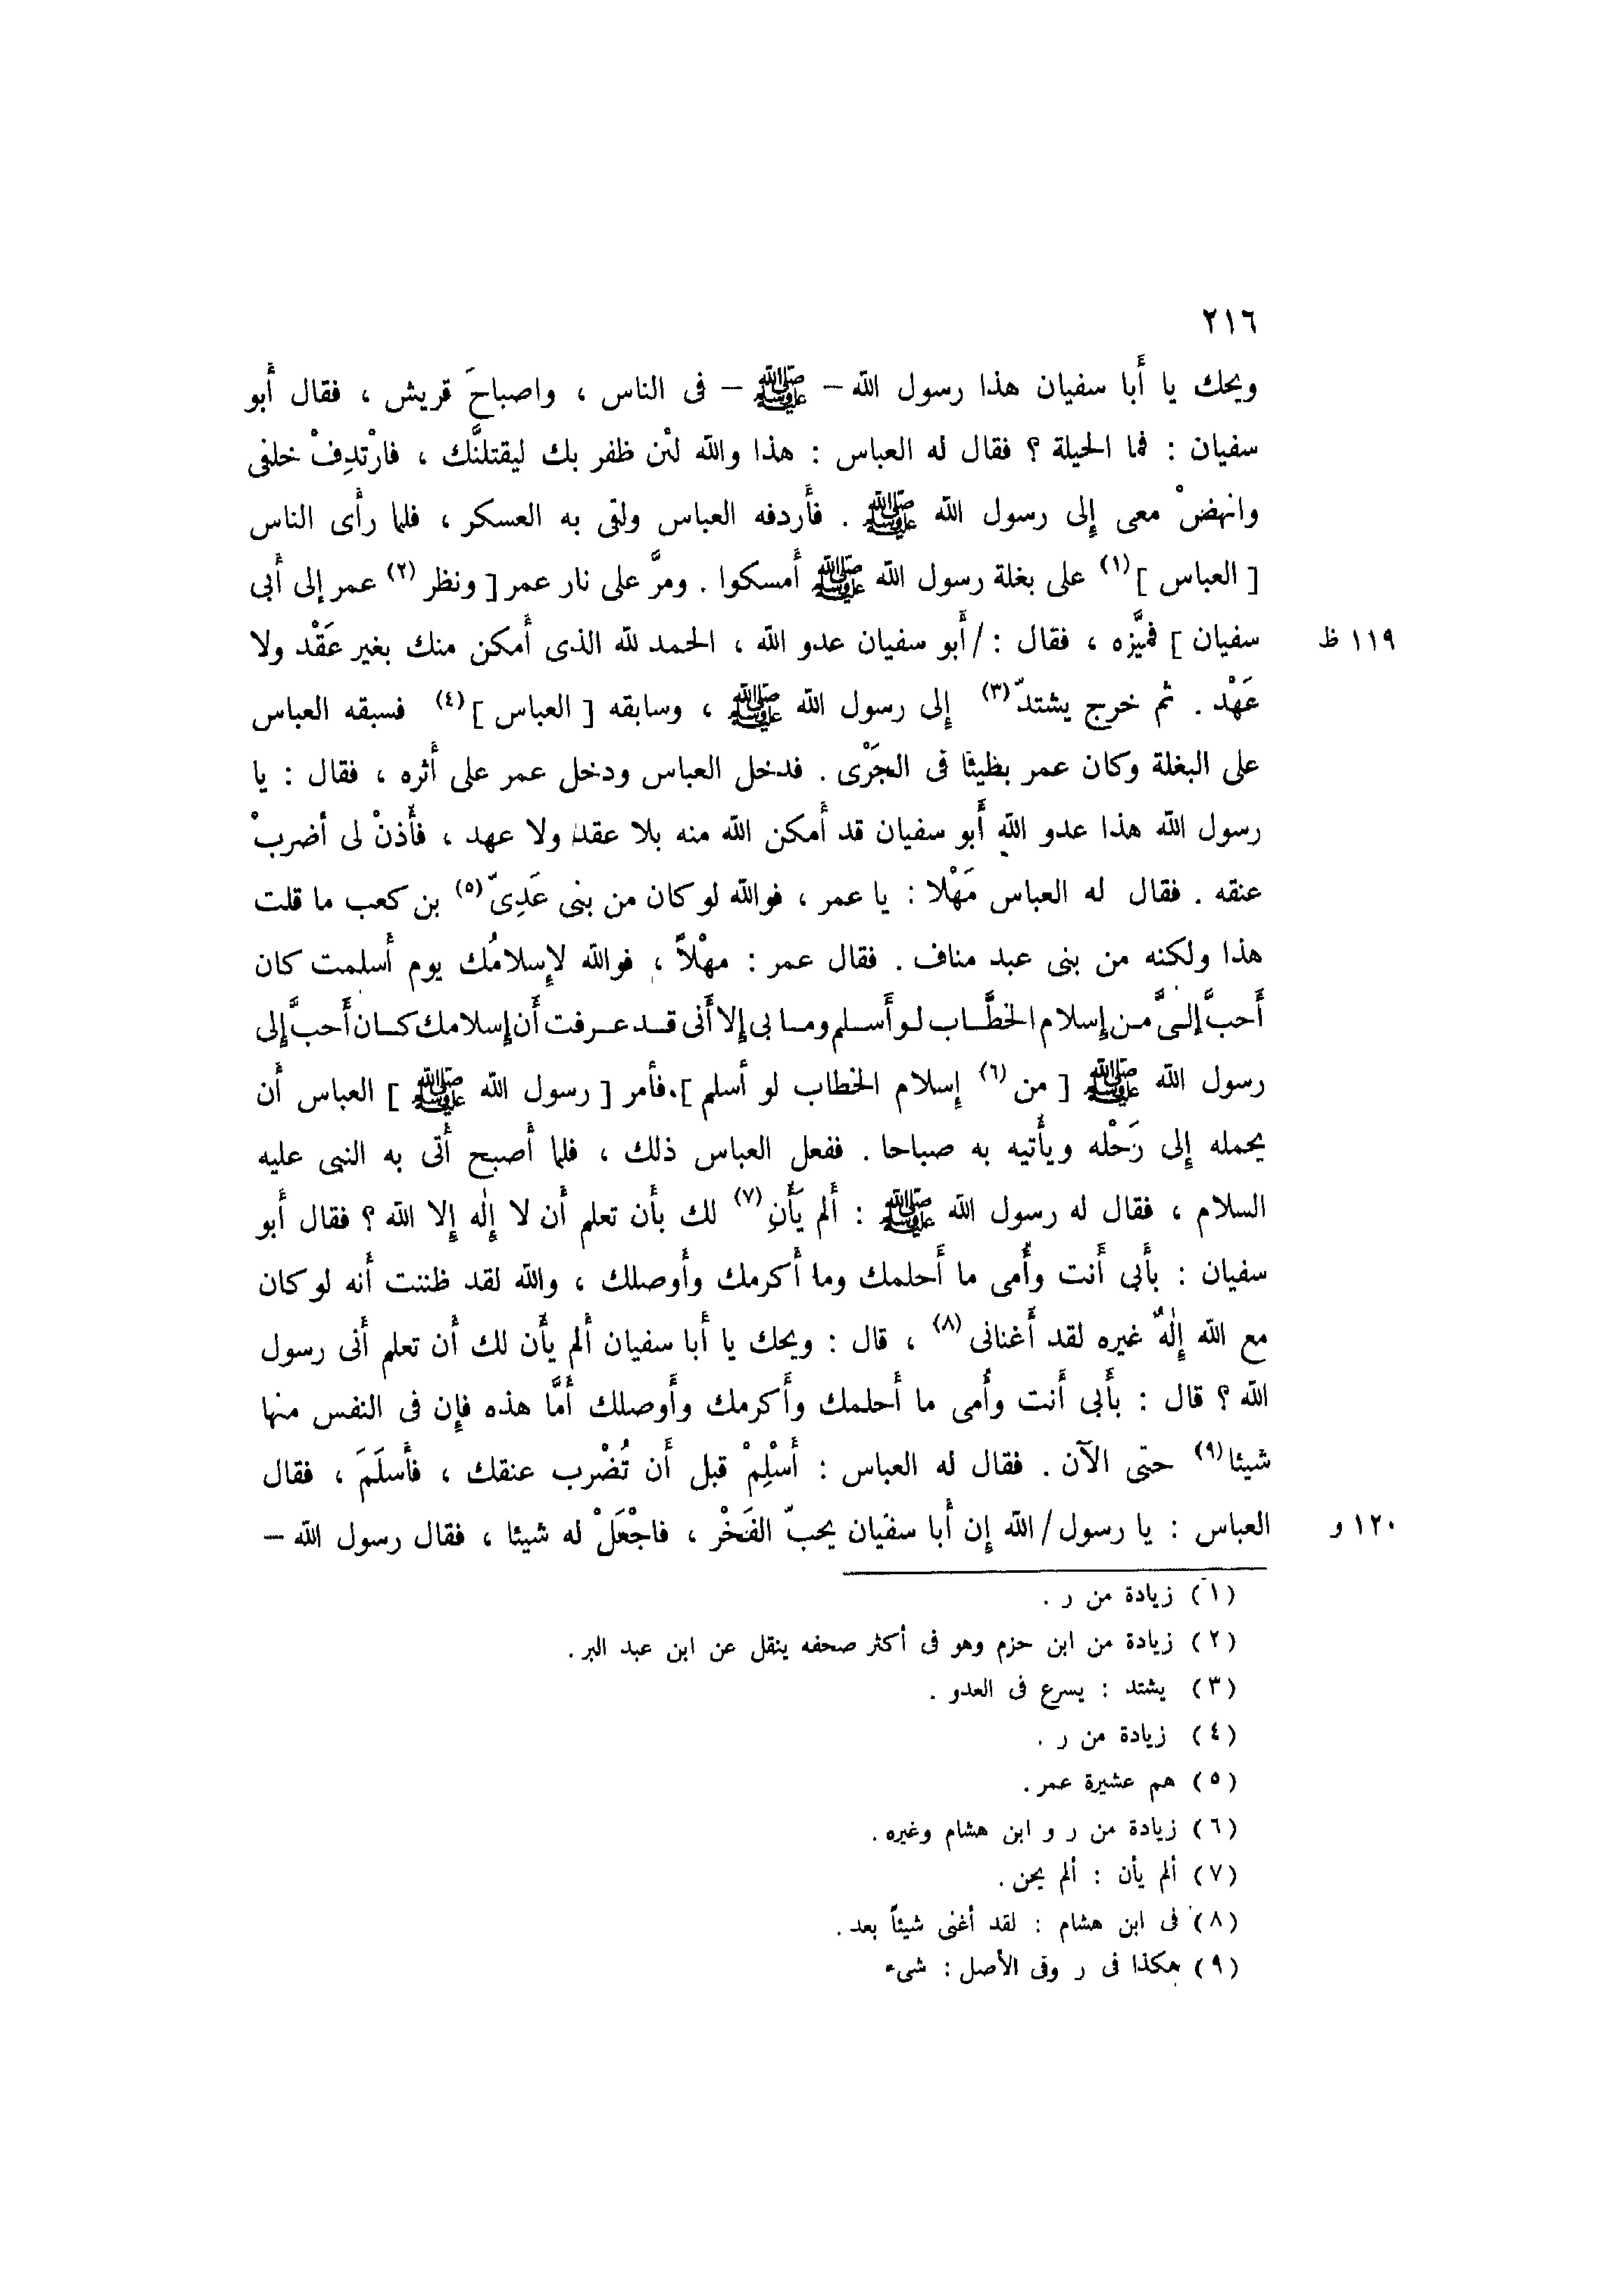 ٢١٦
ويحك يا أَبا سفيان هذا رسول الله – ﷺ – فى الناس ، واصباحَ قريش ، فقال أَبو
سفيان : فما الحيلة ؟ فقال له العباس : هذا والله لئن ظفر بك ليقتلنَّك ، فارْتدِفْ خلفى
وانهضْ معى إِلى رسول الله ﷺ . فأَردفه العباس ولقى به العسكر ، فلما رأَى الناس
[ العباس ] (١) على بغلة رسول الله ﷺ أَمسكوا . ومرَّ على نار عمر [ ونظر (٢) عمر إلى أَبى
١١٩ ظ سفيان ] فميَّزه ، فقال : / أَبو سفيان عدو الله ، الحمد لله الذى أَمكن منك بغير عَقْد ولا
عَهْد . ثم خرج يشتدّ (٣) إلى رسول الله ﷺ ، وسابقه [ العباس ] (٤) فسبقه العباس
على البغلة وكان عمر بطيئا فى الجَرْى . فدخل العباس ودخل عمر على أَثره ، فقال : يا
رسول الله هذا عدو الله أَبو سفيان قد أَمكن الله منه بلا عقد ولا عهد ، فأَذنْ لى أضربْ
عنقه . فقال له العباس مَهْلا : يا عمر ، فوالله لو كان من بنى عَدِىّ (٥) بن كعب ما قلت
هذا ولكنه من بنى عبد مناف . فقال عمر : مهْلاً ، فوالله لإِسلامُك يوم أَسلمت كان
أَحبَّ إلىَّ من إِسلام الخطَّاب لو أَسلم وما بى إِلا أَنى قد عرفت أَن إِسلامك كان أَحبَّ إِلى
رسول الله ﷺ [ من (٦) إِسلام الخطاب لو أسلم ] . فأمر [ رسول الله ﷺ ] العباس أَن
يحمله إِلى رَحْله ويأْتيه به صباحا . ففعل العباس ذلك ، فلما أَصبح أَتى به النبى عليه
السلام ، فقال له رسول الله ﷺ : أَلم يَأْنِ (٧) لك بأَن تعلم أَن لا إِلٰه إِلا الله ؟ فقال أَبو
سفيان : بأَبى أَنت وأُمى ما أَحلمك وما أَكرمك وأَوصلك ، والله لقد ظننت أَنه لو كان
مع الله إِلٰهٌ غيره لقد أَغنانى (٨) ، قال : ويحك يا أَبا سفيان أَلم يأْن لك أَن تعلم أَنى رسول
الله ؟ قال : بأَبى أَنت وأُمى ما أَحلمك وأَكرمك وأَوصلك أَمَّا هذه فإِن فى النفس منها
شيئا (٩) حتى الآن . فقال له العباس : أَسْلِمْ قبل أَن تُضْرب عنقك ، فأَسلَمَ ، فقال
١٢٠ و العباس : يا رسول / الله إِن أَبا سفيان يحبّ الفَخْر ، فاجْعَلْ له شيئا ، فقال رسول الله –
(١) زيادة من ر .
(٢) زيادة من ابن حزم وهو فى أكثر صحفه ينقل عن ابن عبد البر .
(٣) يشتد : يسرع فى العدو .
(٤) زيادة من ر .
(٥) هم عشيرة عمر .
(٦) زيادة من ر و ابن هشام وغيره .
(٧) ألم يأن : ألم يحن .
(٨) فى ابن هشام : لقد أغنى شيئاً بعد .
(٩) هكذا فى ر وفى الأصل : شىء